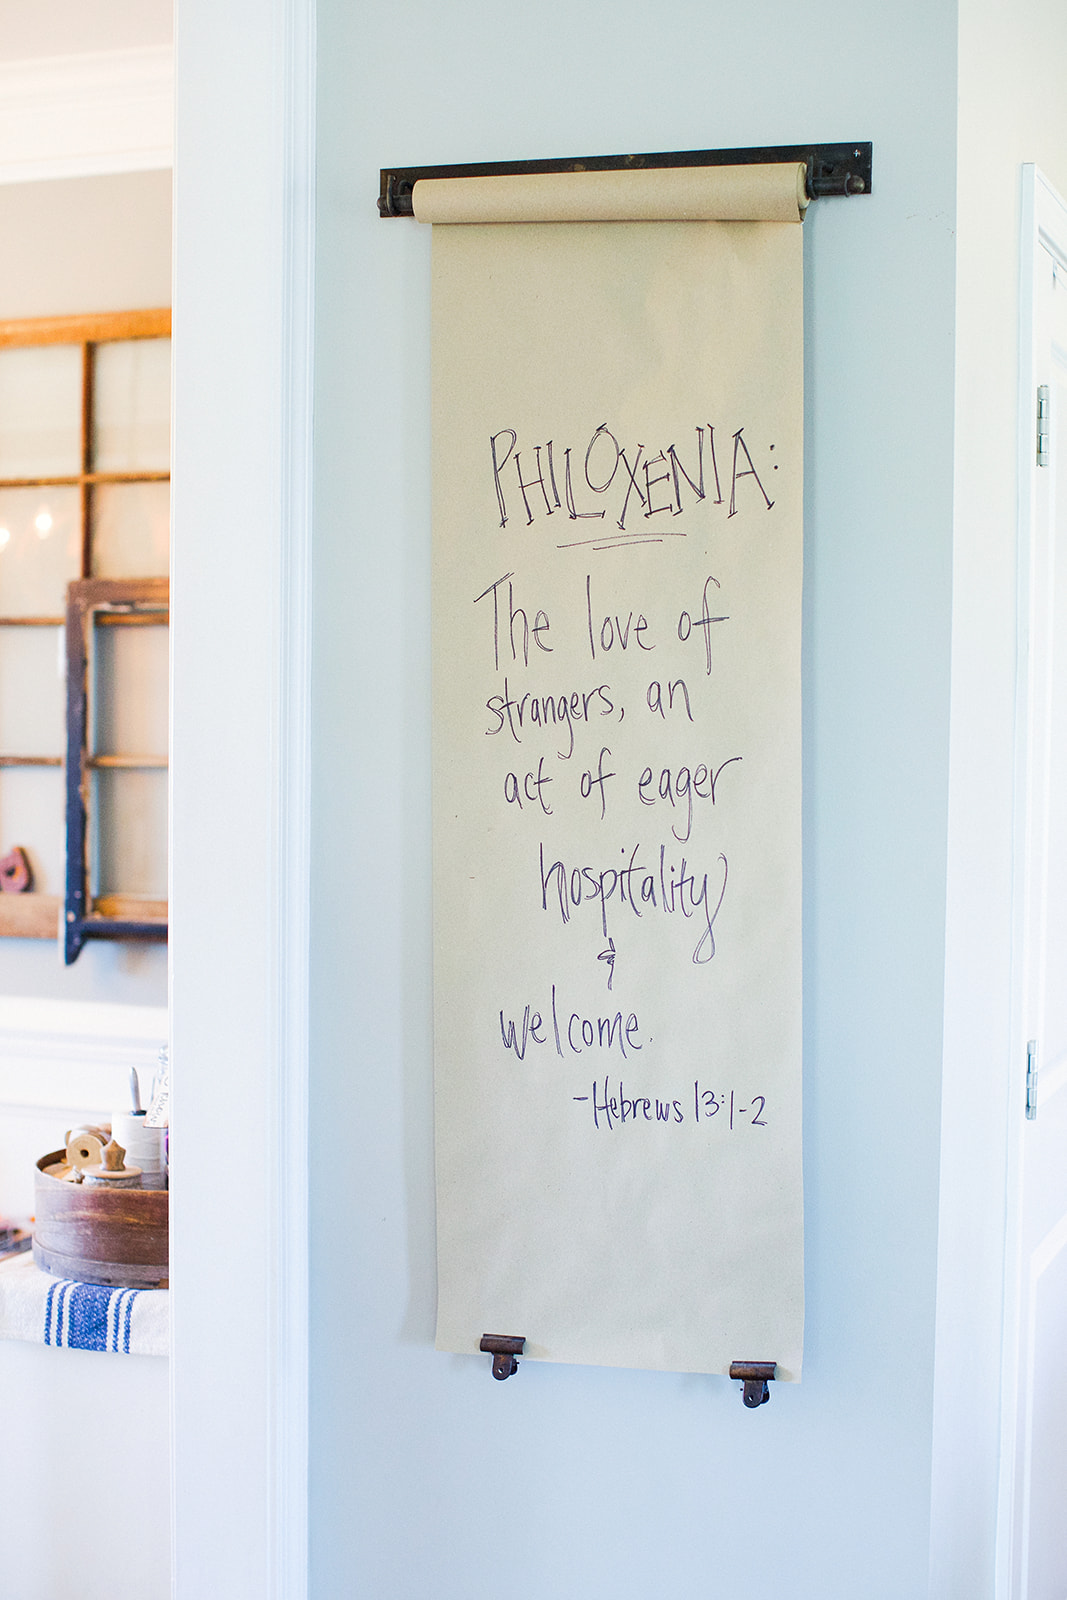 PHILOXENIA:
The love of
strangers, an
act of eager
hospitality
&
welcome.
-Hebrews 13:1-2